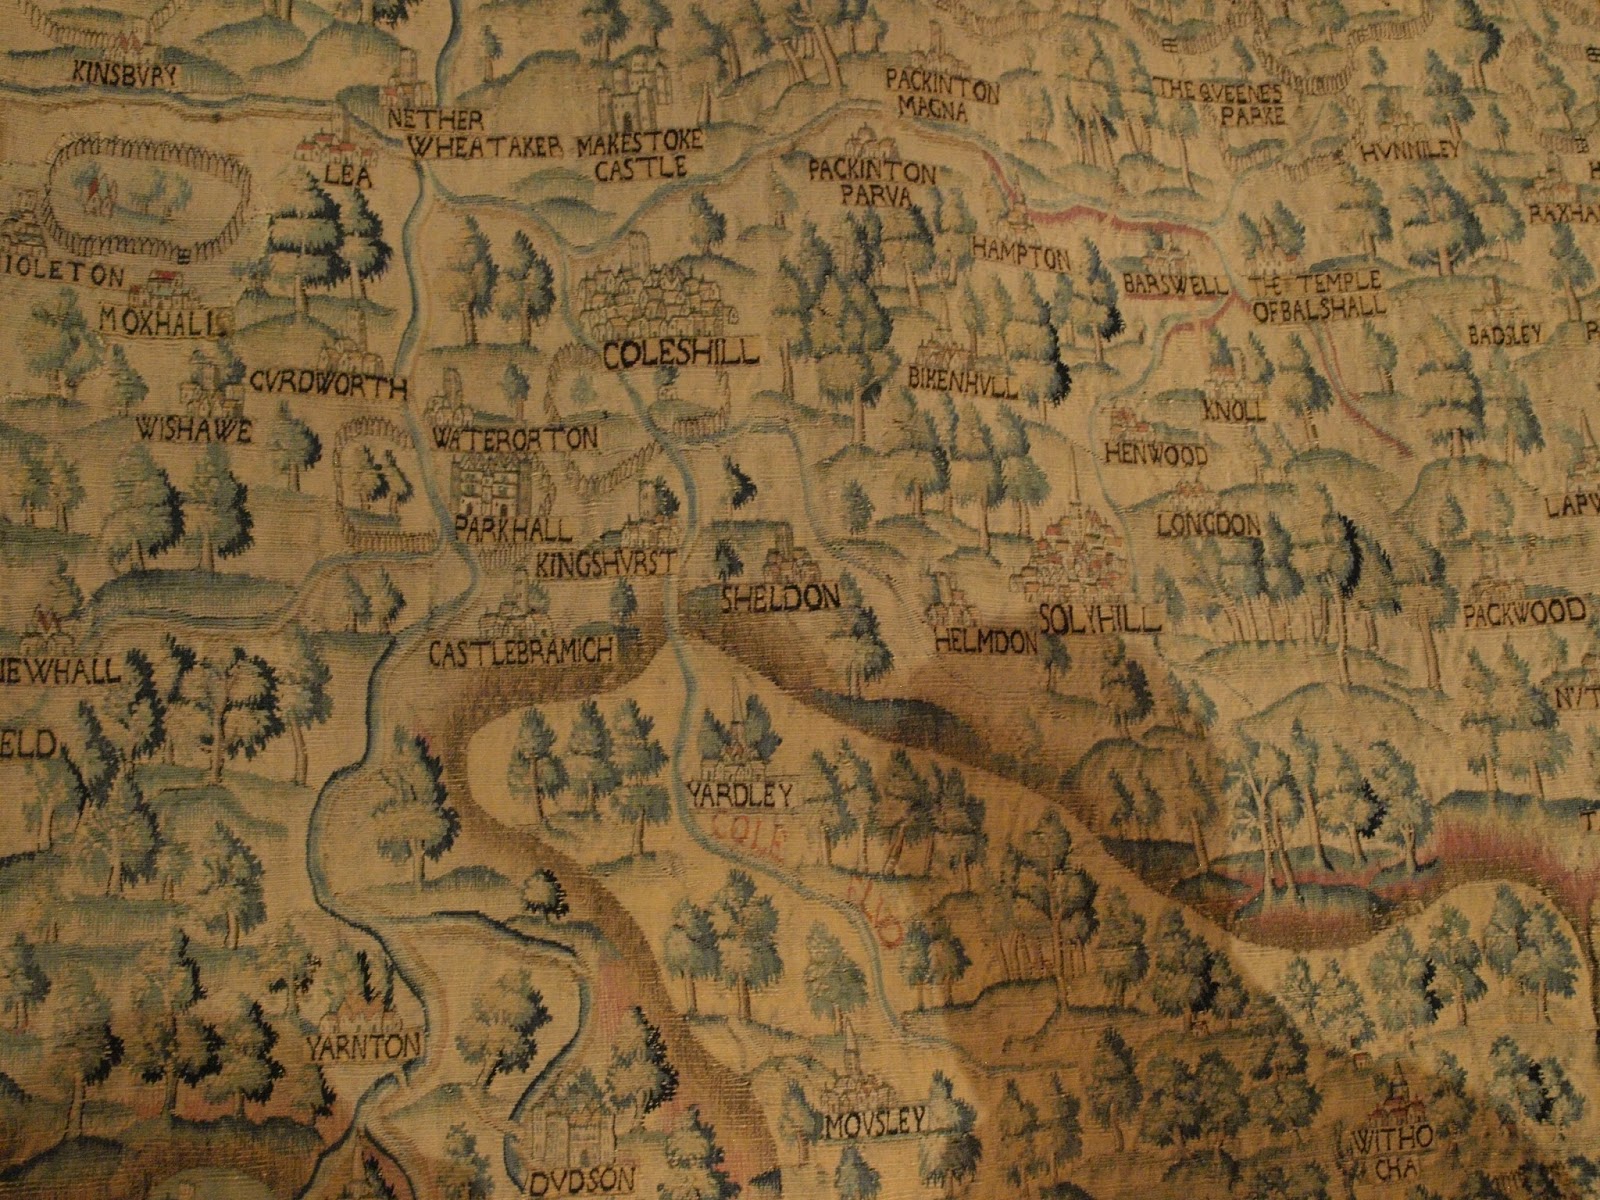 KINSBVRY
NETHER
WHEATAKER
MAKESTOKE
CASTLE
PACKINTON
MAGNA
THE QVEENES
PARKE
HVNNILEY
LEA
PACKINTON
PARVA
HAMPTON
BARSWELL
THE TEMPLE
OFBALSHALL
BADSLEY
MOXHALL
COLESHILL
CVRDWORTH
BIKENHVLL
KNOLL
WISHAWE
WATERORTON
HENWOOD
PARKHALL
LONGDON
KINGSHVRST
SHELDON
SOLYHILL
PACKWOOD
HELMDON
CASTLEBRAMICH
YARDLEY
COLE
FLVD
YARNTON
MOVSLEY
WITHO
CHA
DVDSON